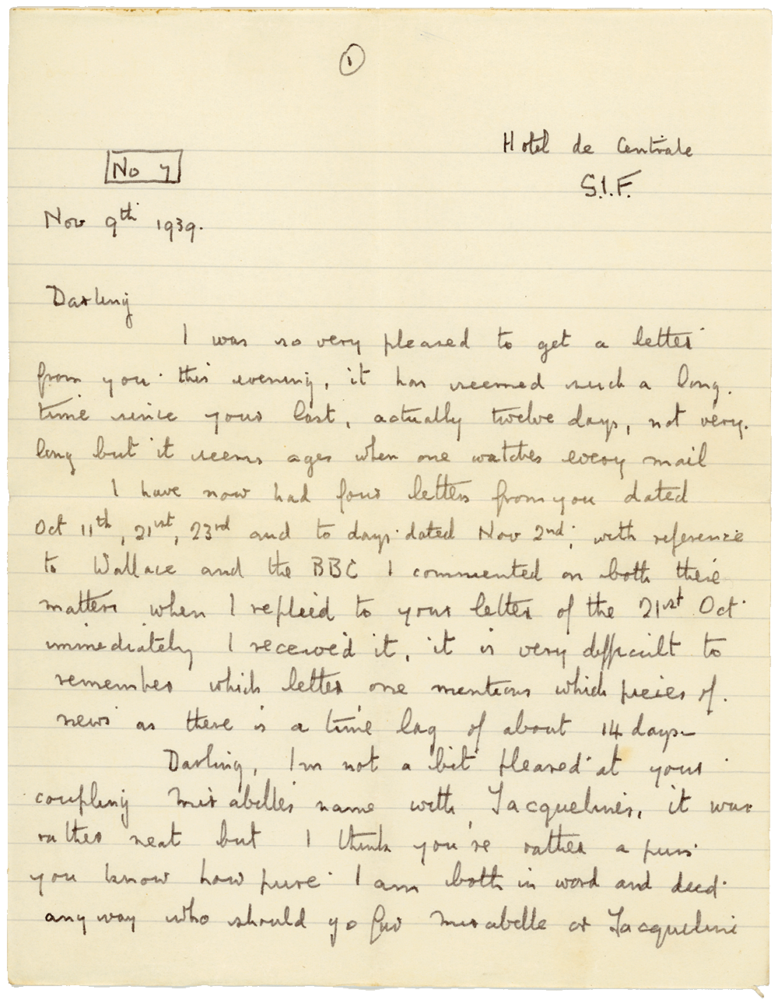 1
Hotel de Centrale
No 7
S.I.F.
Nov 9th 1939.
Darling
I was so very pleased to get a letter
from you this evening, it has seemed such a long.
time since your last, actually twelve days, not very.
long but it seems ages when one watches every mail
I have now had four letters from you dated
Oct 11th, 21st, 23rd and to days dated Nov 2nd; with reference
to Wallace and the BBC I commented on both these
matters when I replied to your letter of the 21st Oct
immediately I received it, it is very difficult to
remember which letter one mentions which pieces of.
news as there is a time lag of about 14 days-
Darling, I'm not a bit pleased at your
coupling Mirabelle's name with Jacqueline's, it was
rather neat but I think you're rather a
you know how pure I am both in word and deed
anyway who should Mirabelle or Jacqueline